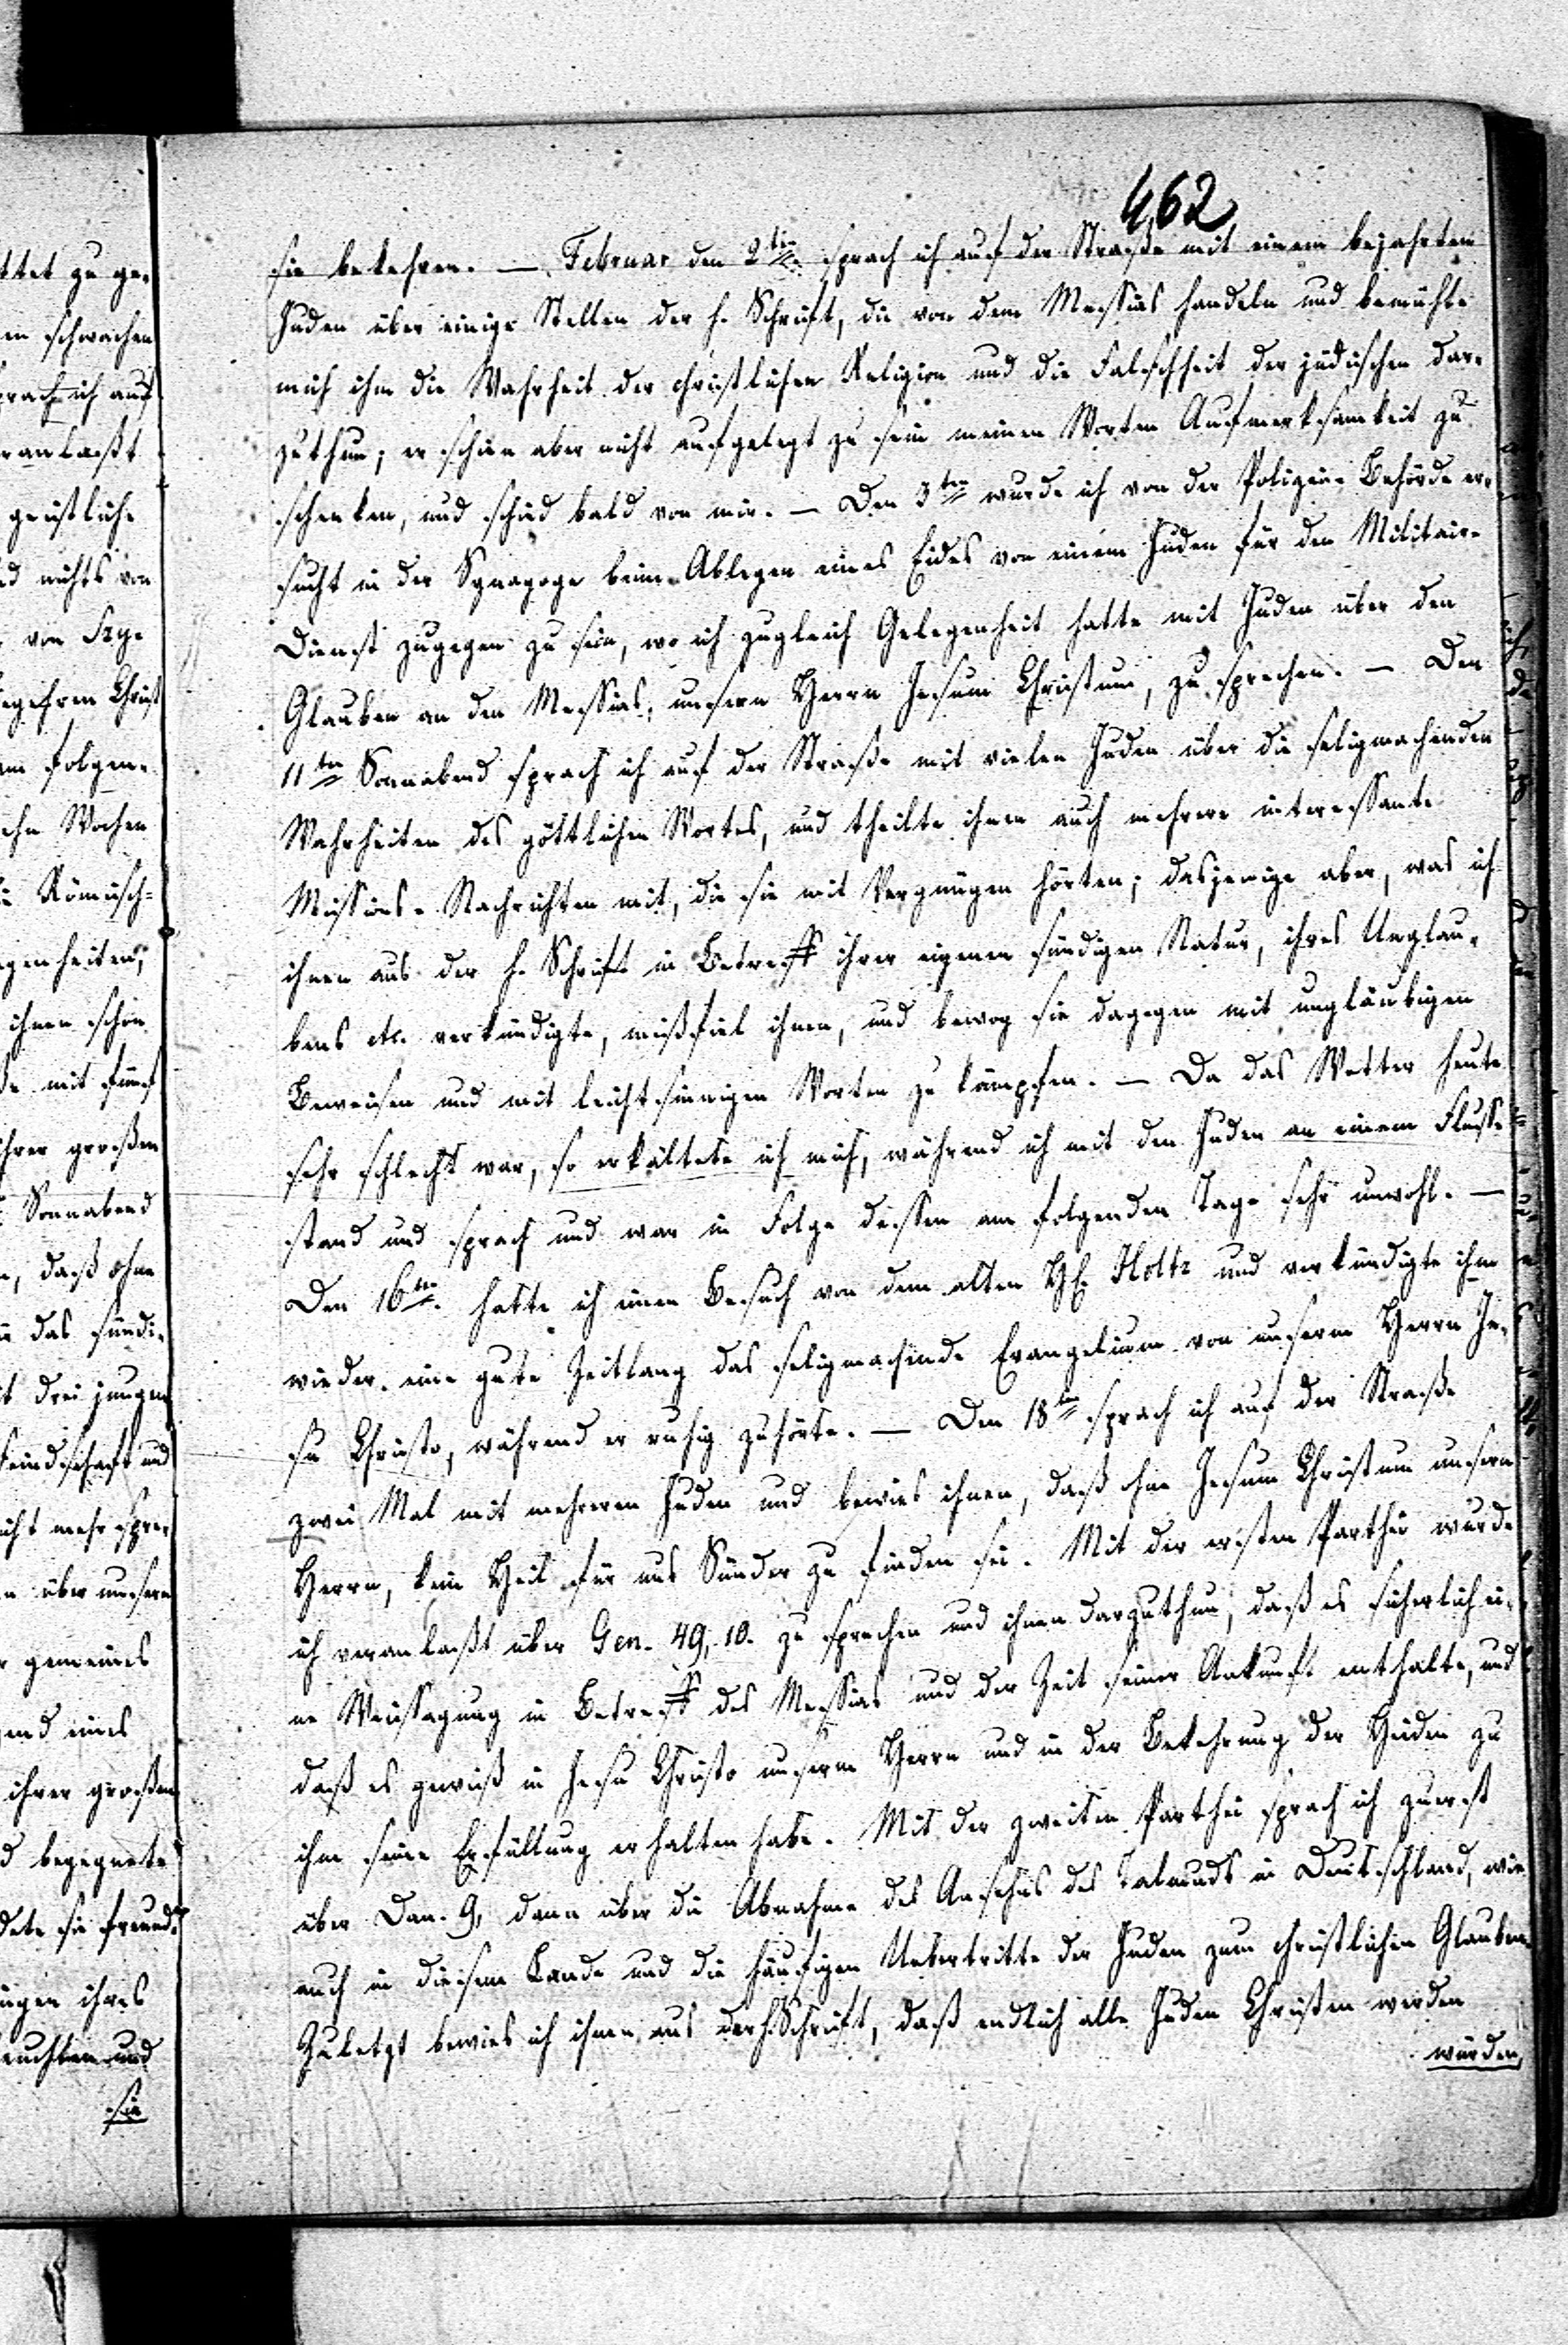 462
sie bekehren. — Februar den 2ten sprach ich auf der Straße mit einem bejahrten
Juden über einige Stellen der h. Schrift, die von dem Messias handeln und bemühte
mich ihm die Wahrheit der christlichen Religion und die Falschheit der jüdischen dar-
zuthun; er schien aber nicht aufgelegt zu sein meinen Worten Aufmerksamkeit zu
schenken, und schied bald von mir. — Den 3ten wurde ich von der Polizei-Behörde er-
sucht in der Synagoge beim Ablegen eines Eides von einem Juden für den Militair-
Dienst zugegen zu sein, wo ich zugleich Gelegenheit hatte mit Juden über den
Glauben an den Messias, unsern Herrn Jesum Christum, zu sprechen. — Den
11ten Sonnabend sprach ich auf der Straße mit vielen Juden über die seligmachenden
Wahrheiten des göttlichen Wortes, und theilte ihnen auch mehrere interessante
Missions-Nachrichten mit, die sie mit Vergnügen hörten; dasjenige aber, was ich
ihnen aus der h. Schrift in Betreff ihrer eigenen sündigen Natur, ihres Unglau-
bens etc. verkündigte, mißfiel ihnen, und bewog sie dagegen mit ungläubigen
Beweisen und mit leichtsinnigen Worten zu kämpfen. — Da das Wetter heute
sehr schlecht war, so erkältete ich mich, während ich mit den Juden an einem Flusse
stand und sprach und war in Folge dessen am folgenden Tage sehr unwohl. —
Den 16ten hatte ich einen Besuch von dem alten H. Holtz und verkündigte ihm
wieder eine gute Zeitlang das seligmachende Evangelium von unserm Herrn Je-
su Christo, während er ruhig zuhörte. — Den 18ten sprach ich auf der Straße
zwei Mal mit mehreren Juden und bewies ihnen, daß ohne Jesum Christum unsern
Herrn, kein Heil für uns Sünder zu finden sei. Mit der ersten Parthei wurde
ich veranlaßt über Gen. 49, 10. zu sprechen und ihnen darzuthun, daß es sicherlich ei-
ne Weissagung in Betreff des Messias und der Zeit seiner Ankunft enthalte, und
daß es gewiß in Jesu Christo unserm Herrn und in der Bekehrung der Heiden zu
ihm seine Erfüllung erhalten habe. Mit der zweiten Parthei sprach ich zuerst
über Dan. 9, dann über die Abnahme des Ansehns des Talmuds in Deutschland, wie
auch in diesem Lande und die häufigen Uebertritte der Juden zum christlichen Glauben.
Zuletzt bewies ich ihnen aus der h. Schrift, daß endlich alle Juden Christen werden
würden,